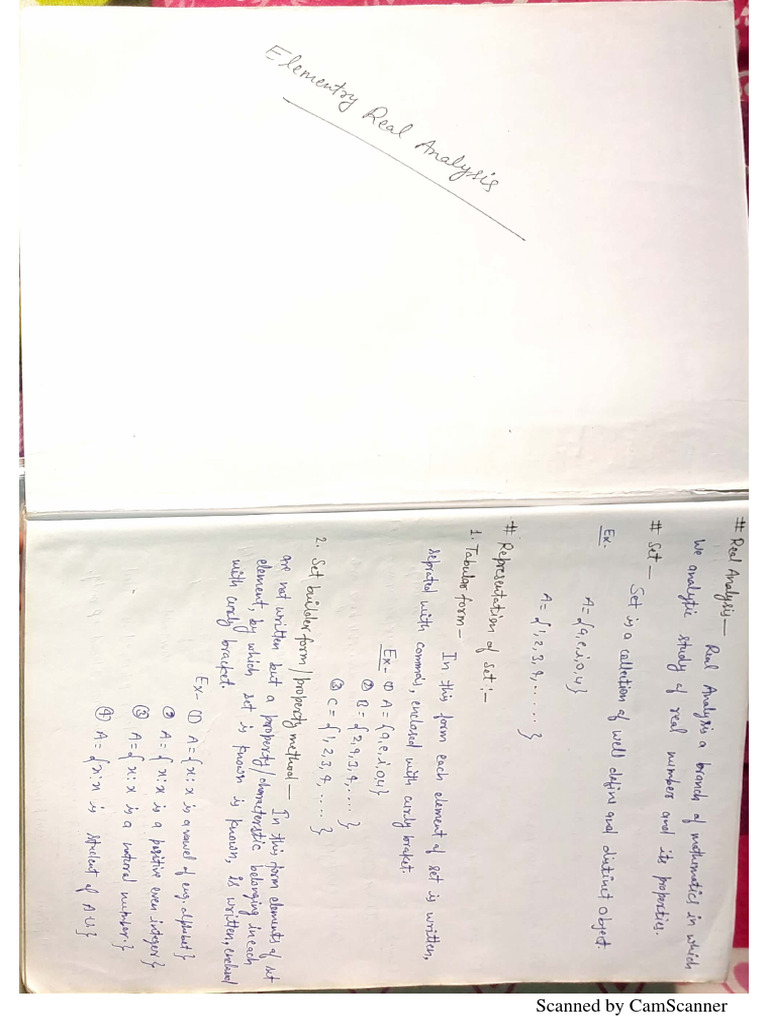 Elementry Real Analysis
# Real Analysis —
Real Analysis a branch of mathematics in which
we analytic study of real number and its properties.
# Set —
Set is a collection of well define and distinct object.
Ex.
A = {a, e, i, o, u}
A = {1, 2, 3, 4, ......}
# Representation of set :-
1. Tabular form — In this form each element of set is written,
seprated with commas, enclosed with curly braket.
Ex- ① A = {a, e, i, o, u}
② B = {2, 9, 3, 4, ....}
③ C = {1, 2, 3, 4, ......}
2. Set builder form / property method — In this form elements of set
are not written but a property/characterstic belonging in each
element, by which set is known is known, is written, enclosed
with curly bracket.
Ex- ① A = {x : x is a vowel of eng. alphabet}
② A = {x : x is a positive even integer}
③ A = {x : x is a natural number.}
④ A = {x : x is student of A.U}
Scanned by CamScanner